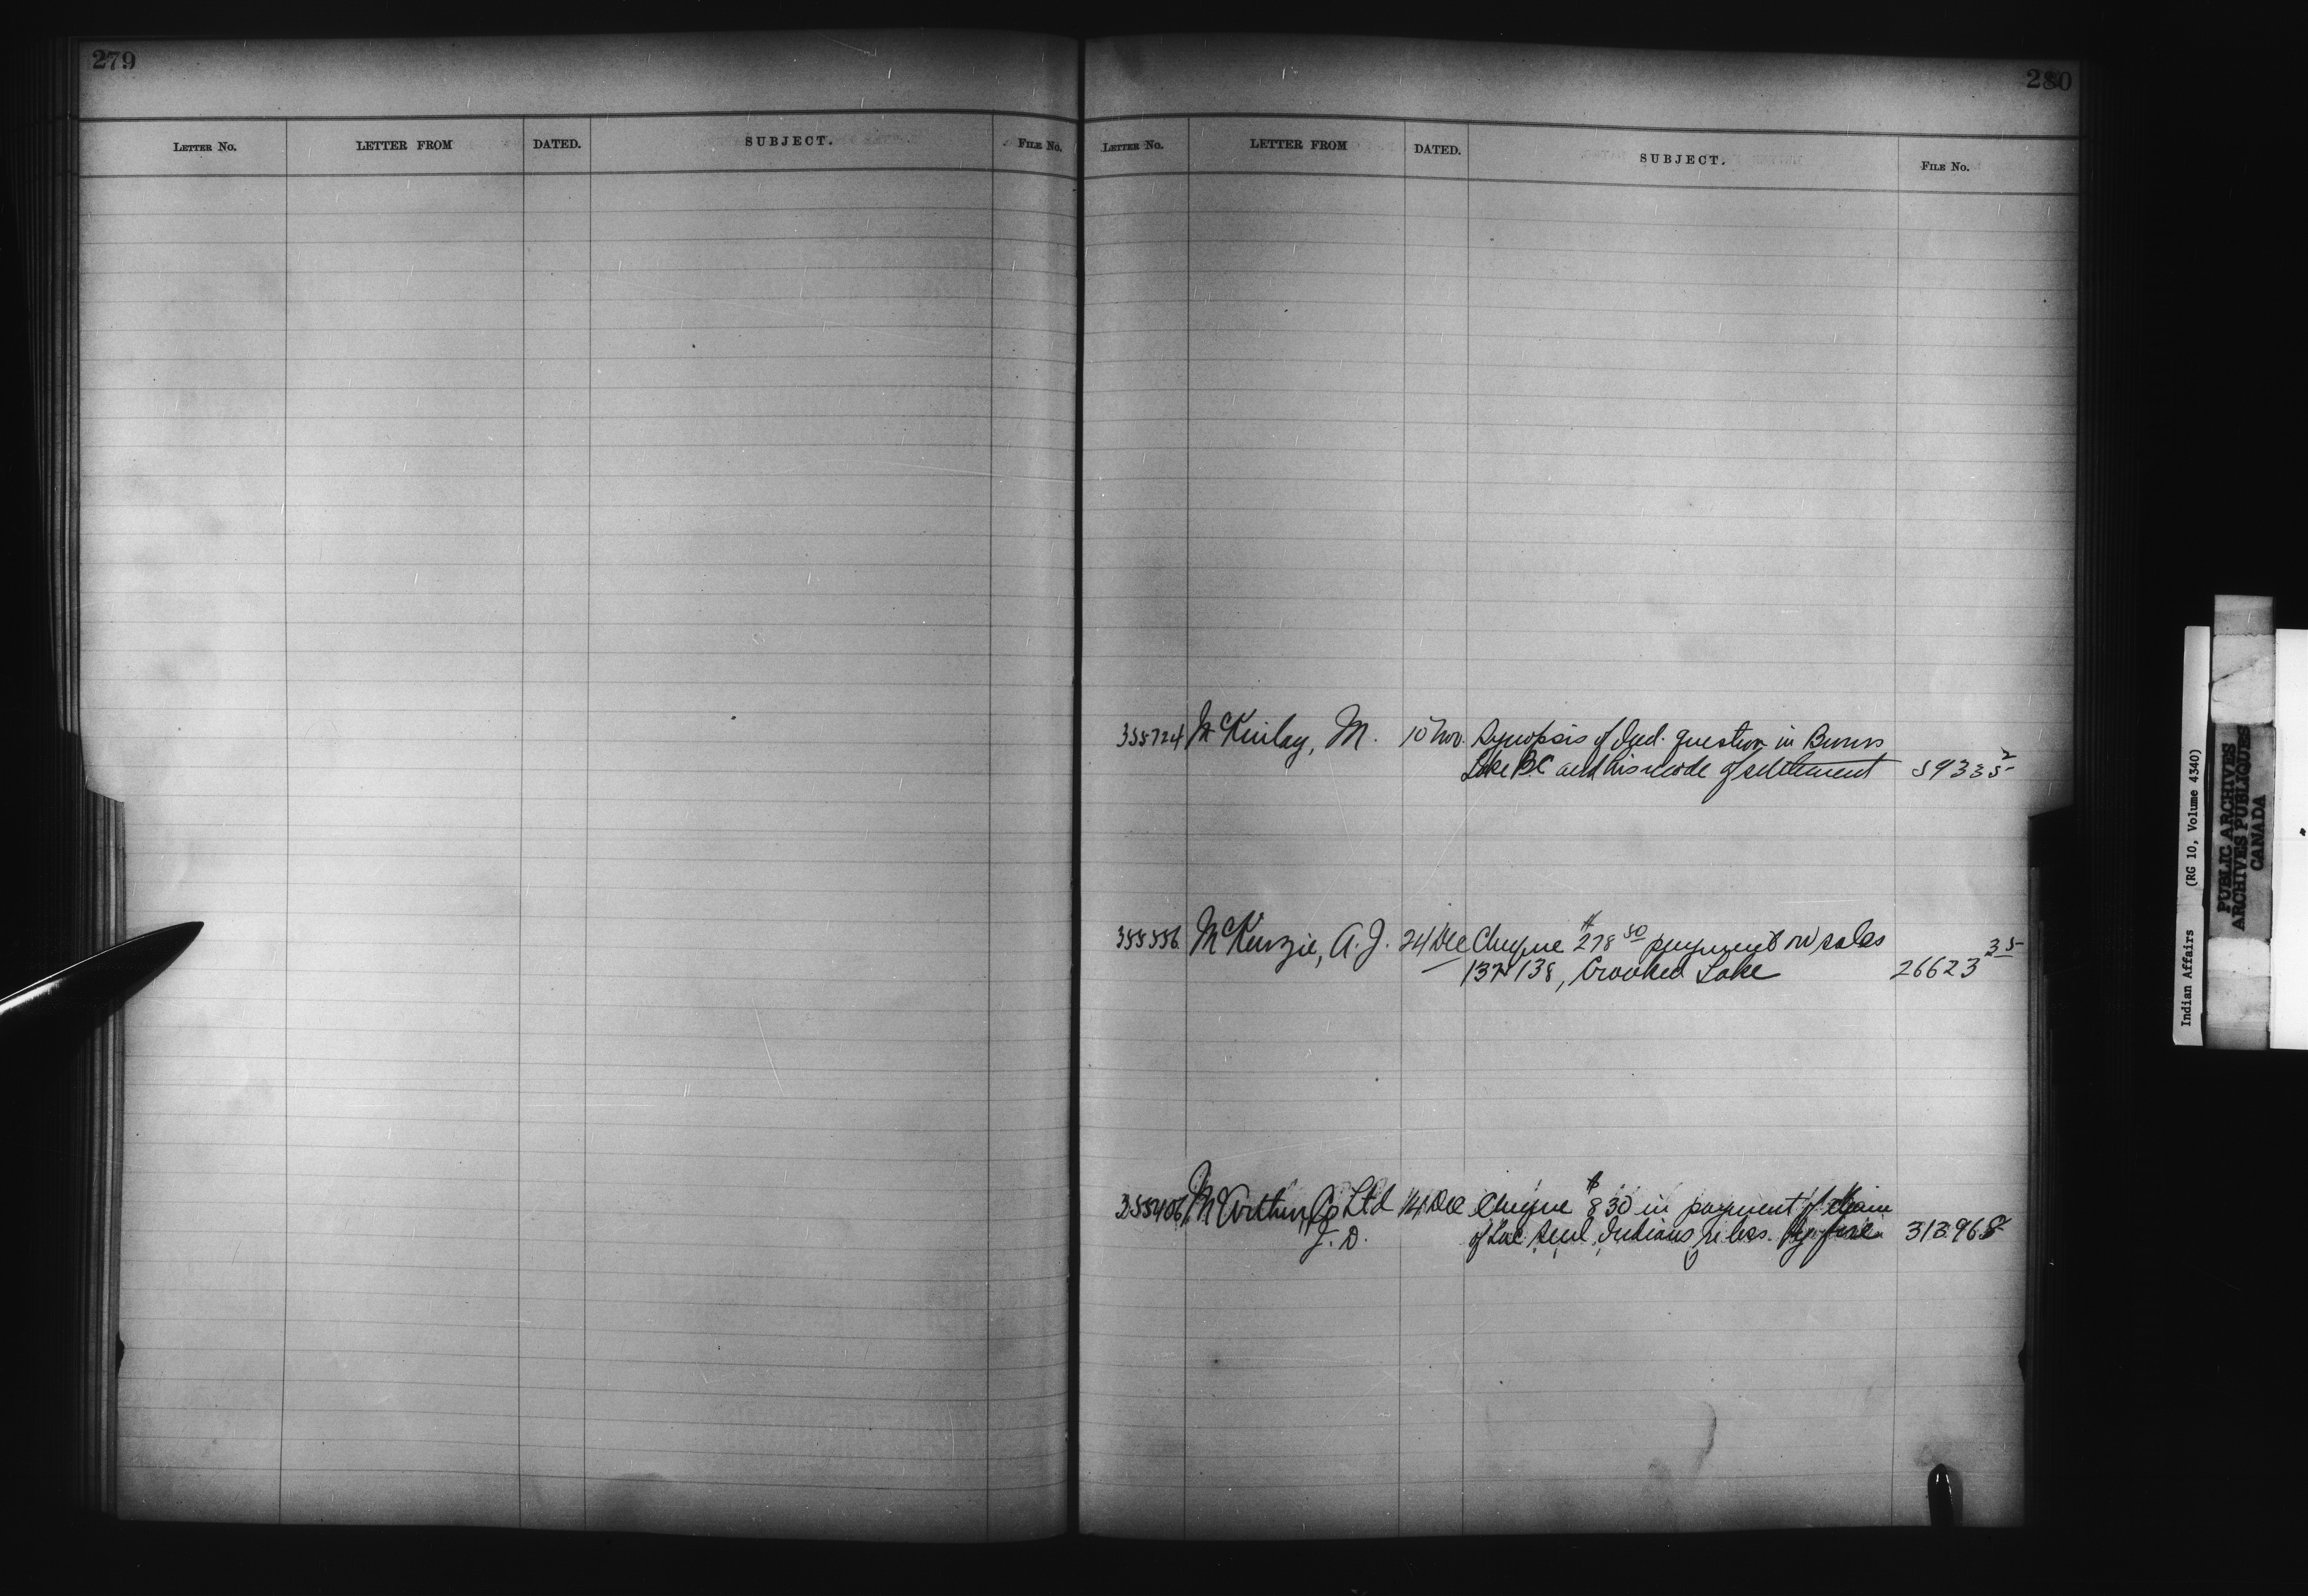 279
LETTER NO. LETTER FROM DATED. SUBJECT. FILE NO.
280
LETTER NO. LETTER FROM DATED. SUBJECT. FILE NO.
355724 McKinlay, M. 10 Nov. Synopsis of Ind. question in Burns
Lake B.C and his mode of settlement 59335 2
355556 McKenzie, A. J. 24 Dec Cheque $278 50 payment on sales
137 138, Crooked Lake 26623 35
355406 McArthur Co Ltd 14 Dec Cheque $830 in payment of claim
J. D. of Lac Seul Indians re loss by fire 313968
Indian Affairs (RG 10, Volume 4340)
PUBLIC ARCHIVES
ARCHIVES PUBLIQUES
CANADA